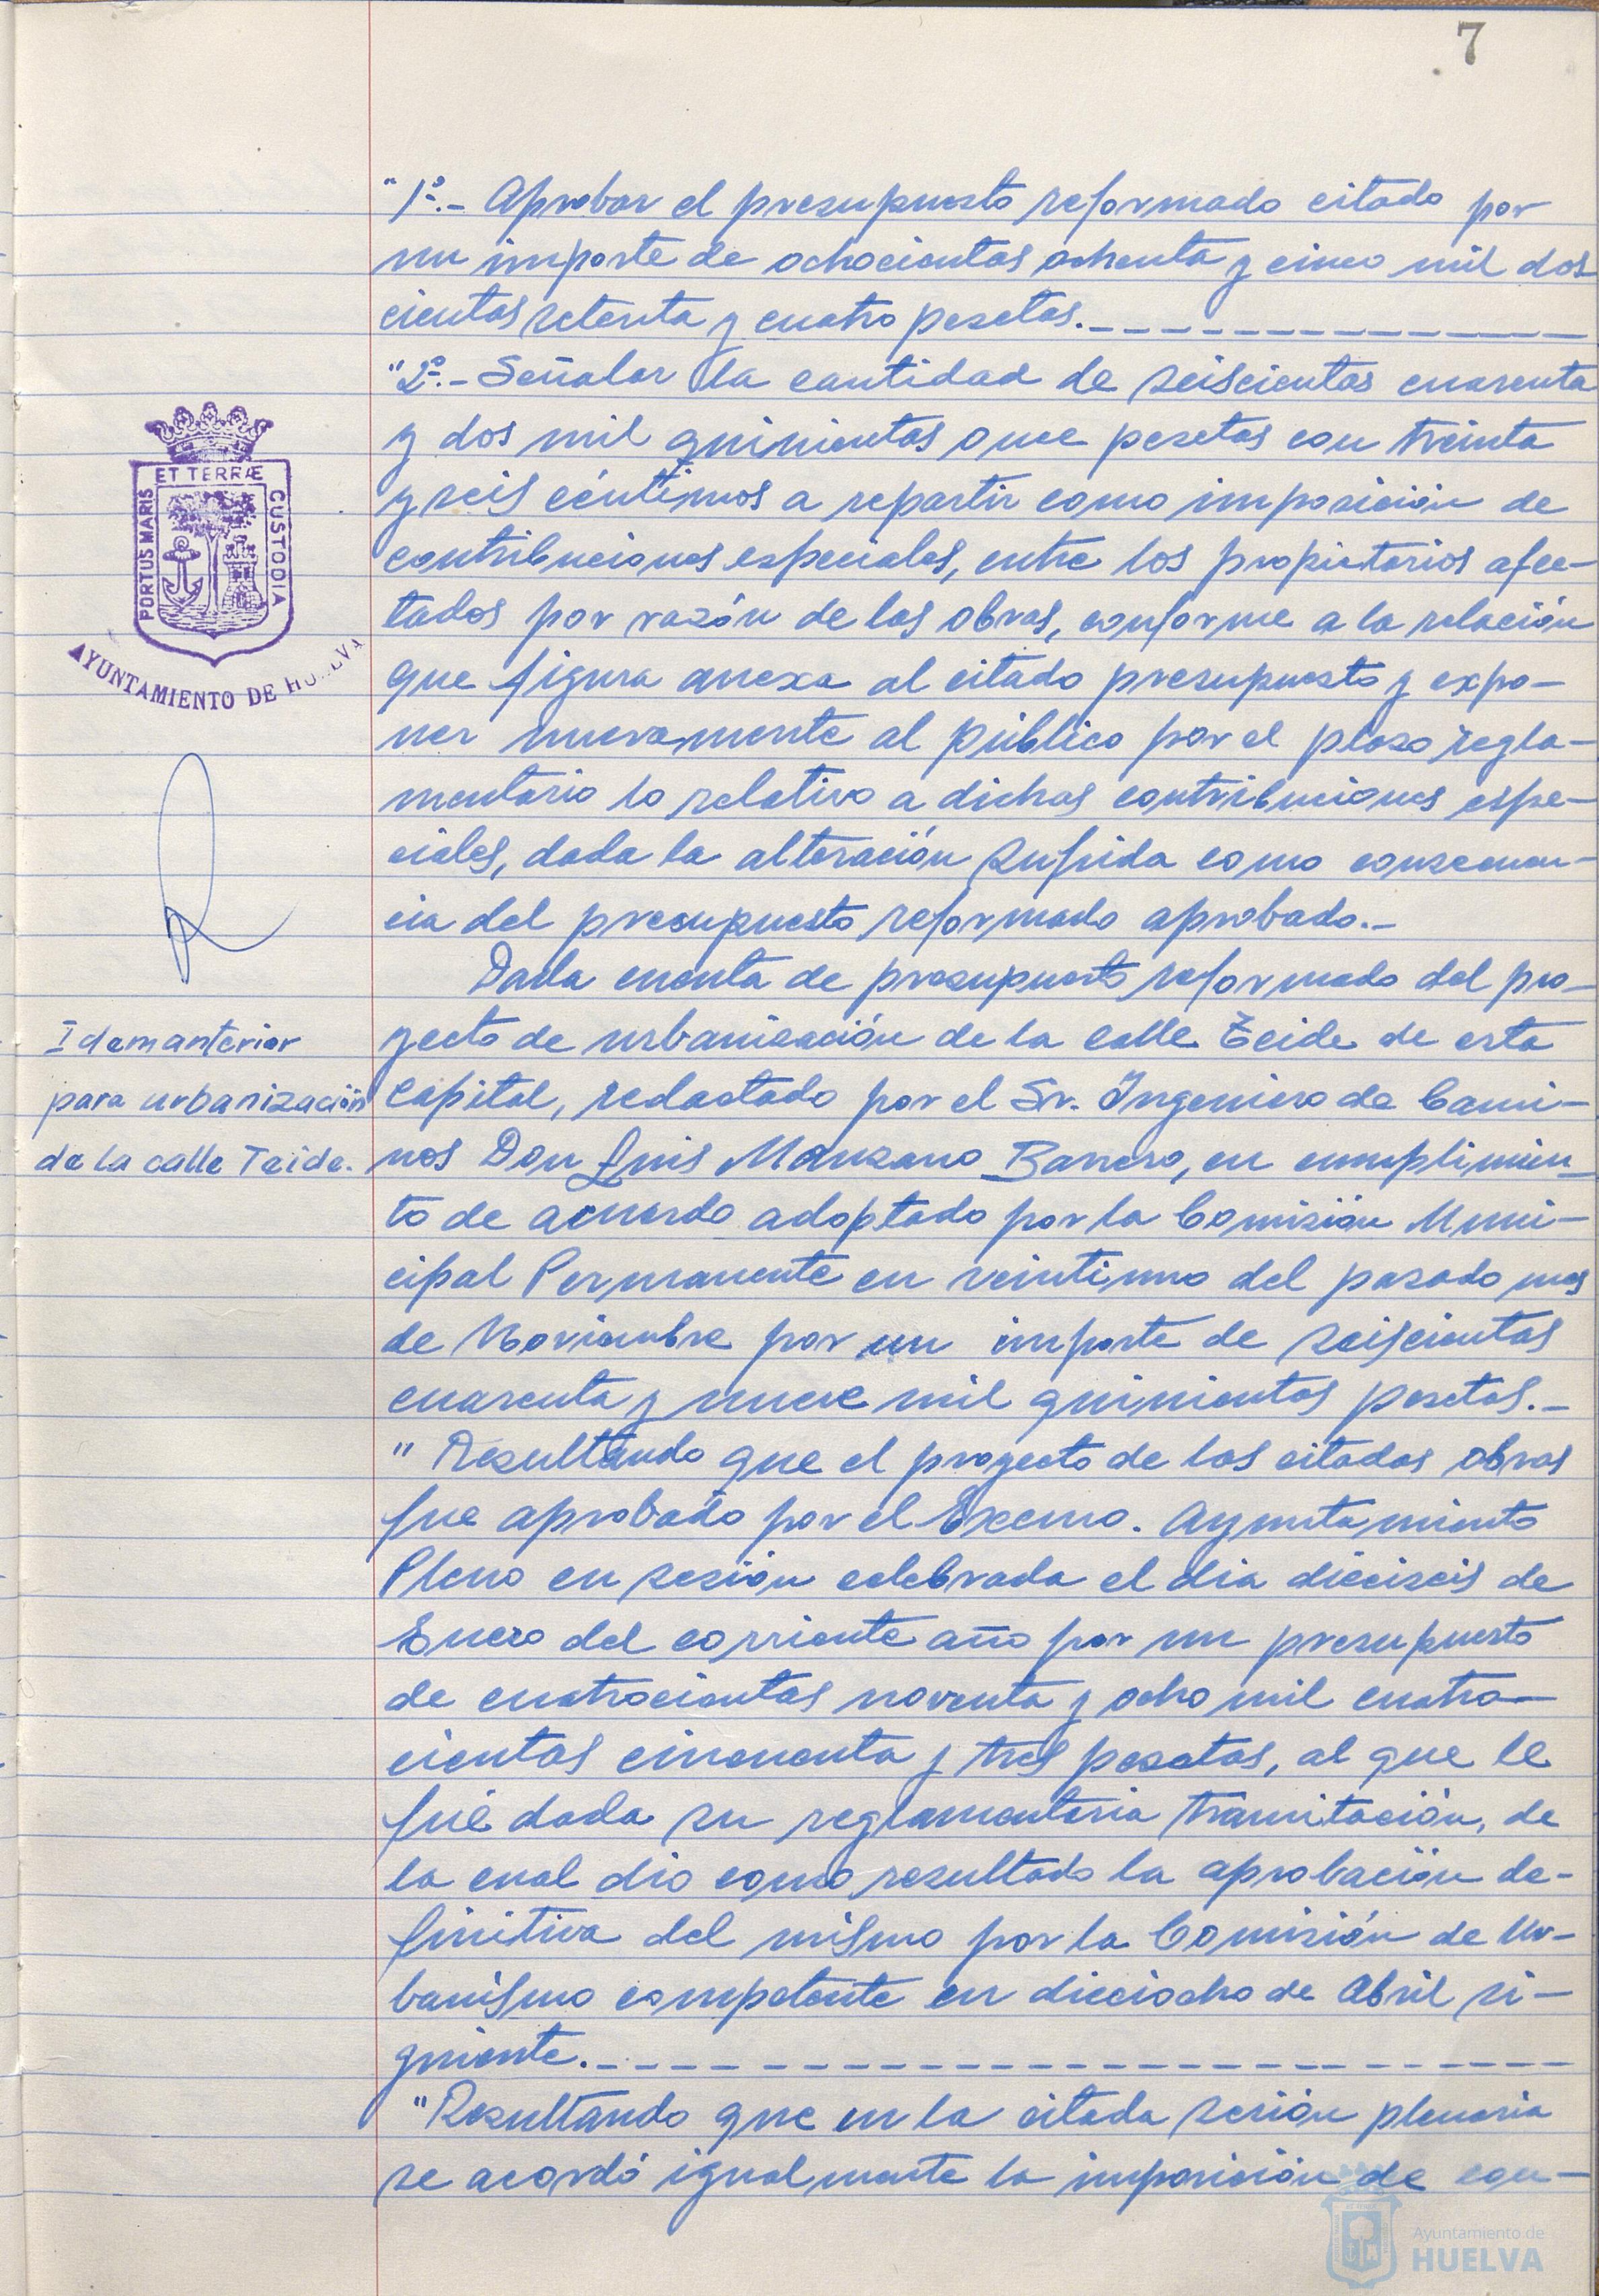 7
"1º.- Aprobar el presupuesto reformado citado por
un importe de ochocientas ochenta y cinco mil dos
cientas setenta y cuatro pesetas.-
"2º.- Señalar la cantidad de seiscientas cuarenta
y dos mil quinientas once pesetas con treinta
y seis céntimos a repartir como imposición de
contribuciones especiales, entre los propietarios afec-
tados por razón de las obras, conforme a la relación
que figura anexa al citado presupuesto y expo-
ner nuevamente al público por el plazo regla-
mentario lo relativo a dichas contribuciones espe-
ciales, dada la alteración sufrida como consecuen-
cia del presupuesto reformado aprobado.-
Dada cuenta de presupuesto reformado del pro-
yecto de urbanización de la calle Teide de esta
capital, redactado por el Sr. Ingeniero de Cami-
nos Don Luis Manzano Barrero, en cumplimien-
to de acuerdo adoptado por la Comisión Muni-
cipal Permanente en veintiuno del pasado mes
de Noviembre por un importe de seiscientas
cuarenta y nueve mil quinientas pesetas.-
" Resultando que el proyecto de las citadas obras
fue aprobado por el Excmo. Ayuntamiento
Pleno en sesión celebrada el dia dieciseis de
Enero del corriente año por un presupuesto
de cuatrocientas noventa y ocho mil cuatro-
cientas cincuenta y tres pesetas, al que le
fué dada su reglamentaria tramitación, de
la cual dio como resultado la aprobación de-
finitiva del mismo por la Comisión de Ur-
banismo competente en dieciocho de Abril si-
guiente.-
"Resultando que en la citada sesión plenaria
se acordó igualmente la imposición de con-
PORTUS MARIS
ET TERRÆ
CUSTODIA
AYUNTAMIENTO DE HUELVA
Idem anterior
para urbanización
de la calle Teide.
Ayuntamiento de
HUELVA